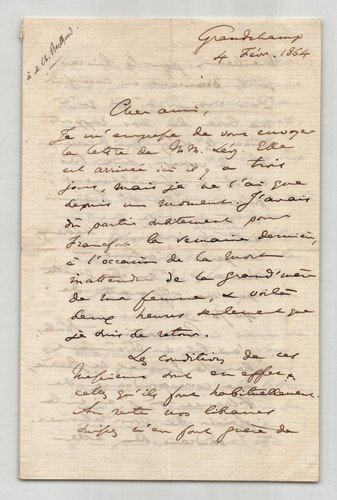 à M. Ch. Berthoud
Grandchamp
4 Févr. 1864
Cher ami,
Je m'empresse de vous envoyer
la lettre de MM. Lévy. Elle
est arrivée ici il y a trois
jours, mais je ne l'ai que
depuis un moment. J'avais
dû partir subitement pour
Francfort la semaine dernière,
à l'occasion de la mort
inattendue de la grand'mère
de ma femme, & voilà
deux heures seulement que
je suis de retour.
Les conditions de ces
Messieurs sont en effet
celles qu'ils font habituellement.
Au reste nos libraires
suisses n'en font guère de